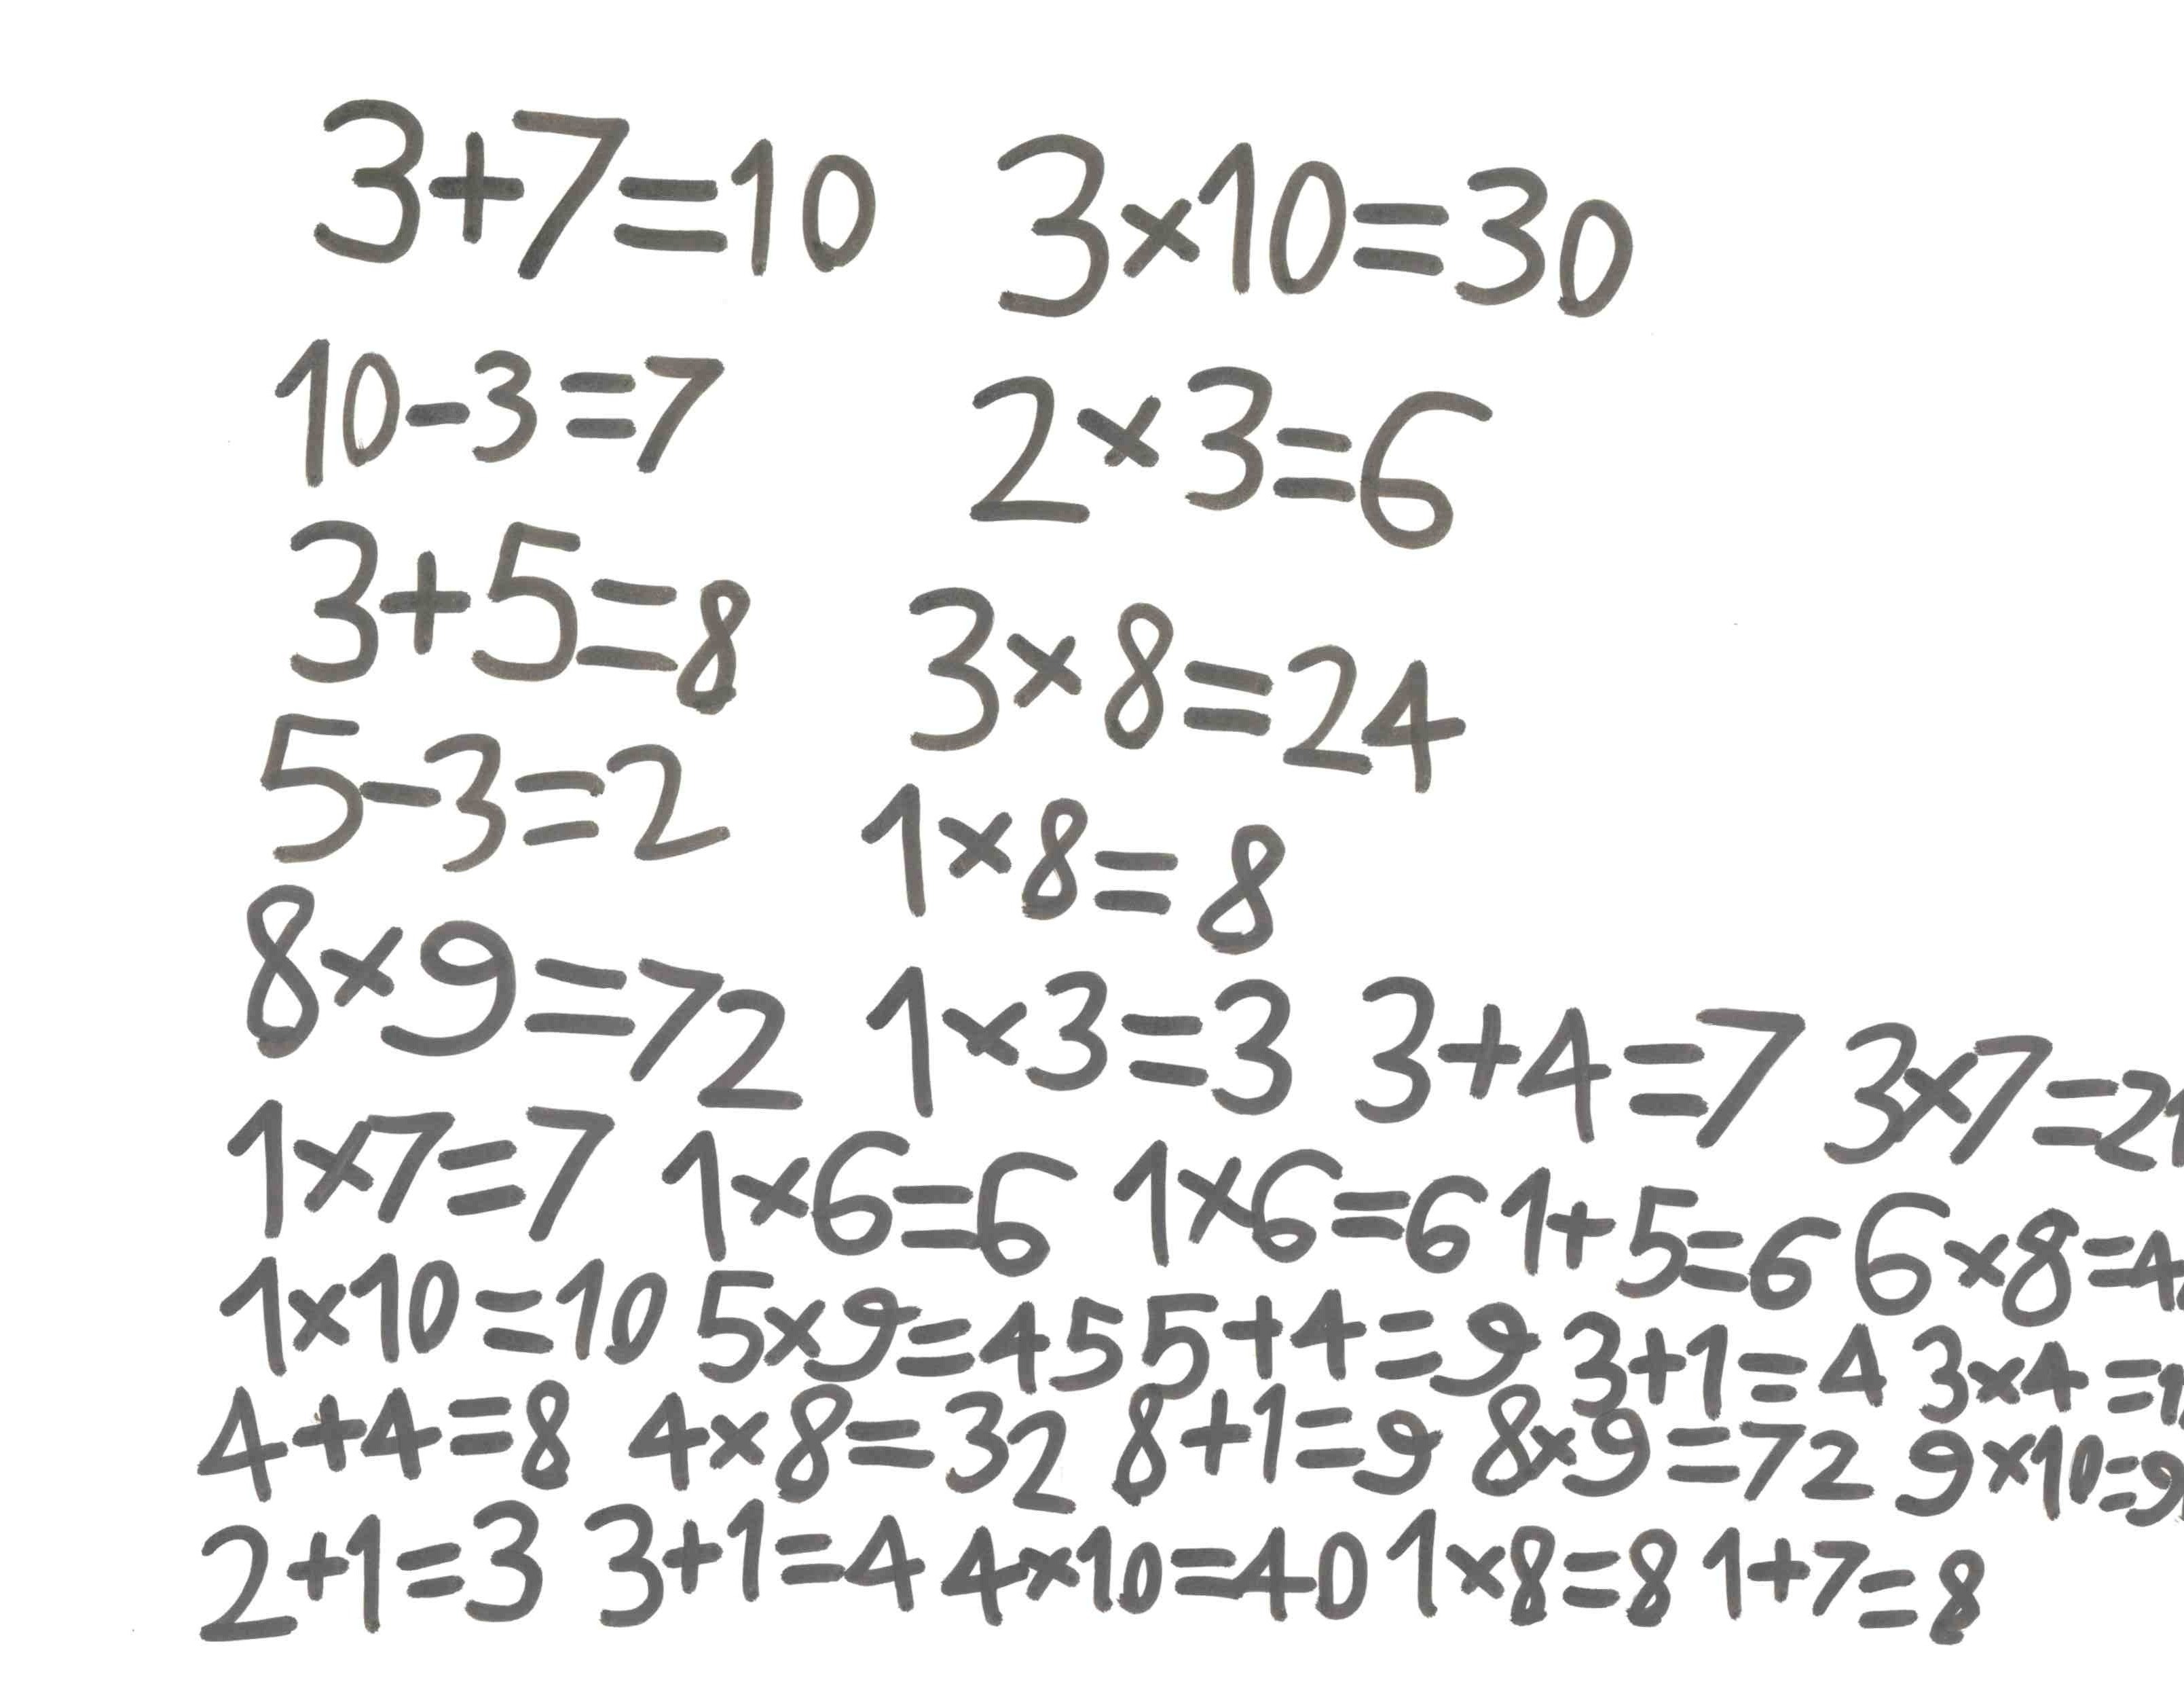 3+7=10 3×10=30
10-3=7 2×3=6
3+5=8 3×8=24
5-3=2 1×8=8
8×9=72 1×3=3 3+4=7 3×7=21
1×7=7 1×6=6 1×6=6 1+5=6 6×8=4
1×10=10 5×9=45 5+4=9 3+1=4 3×4=1
4+4=8 4×8=32 8+1=9 8×9=72 9×10=9
2+1=3 3+1=4 4×10=40 1×8=8 1+7=8